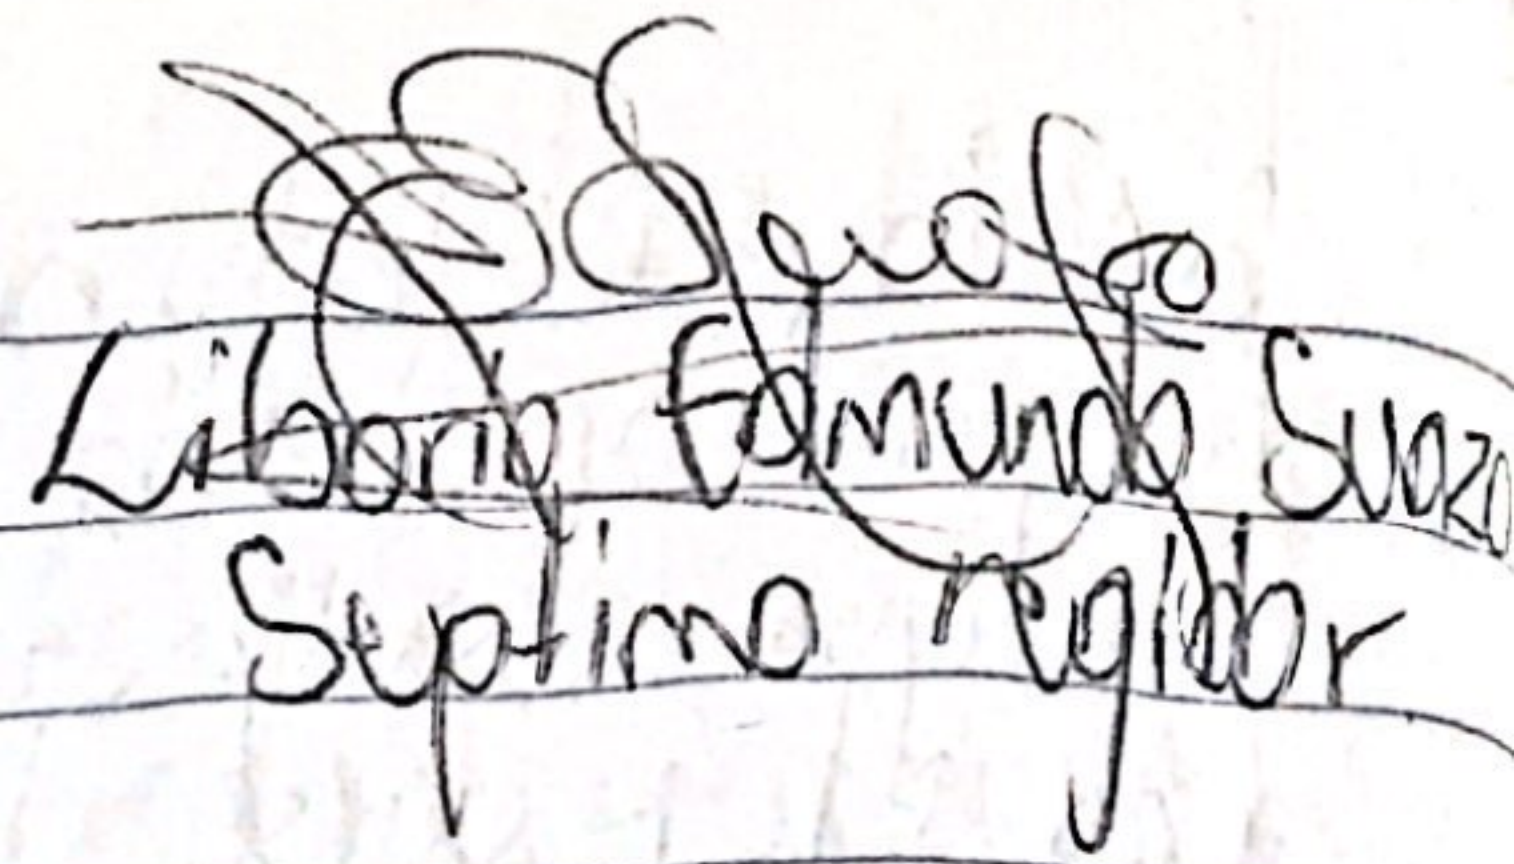 Liborio Edmundo Suazo
Septimo regidor